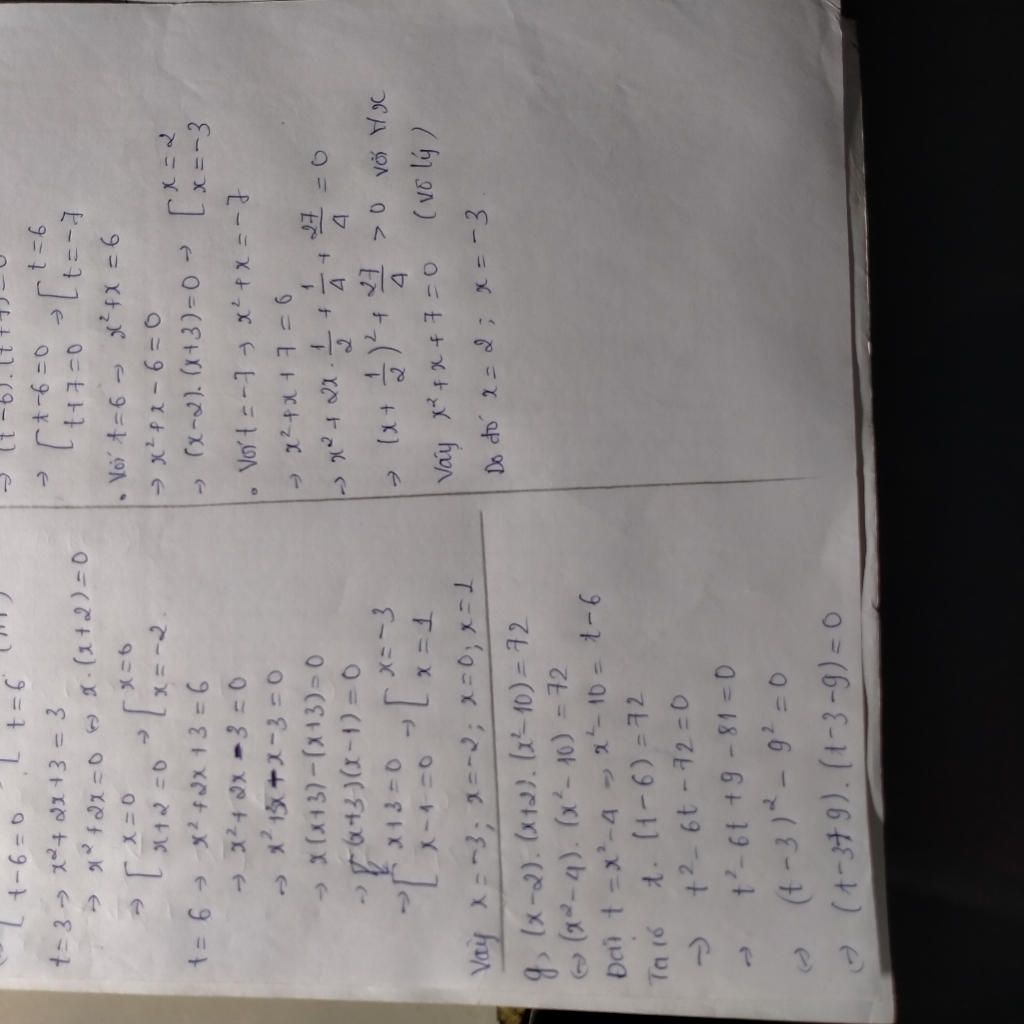 [ t-6=0 [ t=6
t=3 → x²+2x+3=3
→ x²+2x=0 ⇔ x.(x+2)=0
→ [ x=0 → [ x=0
x+2=0 x=-2.
t=6 → x²+2x+3=6
→ x²+2x-3=0
→ x²+3x+x-3=0
→ x(x+3)-(x+3)=0
→ (x+3)(x-1)=0
→ [ x+3=0 → [ x=-3
x-1=0 x=1
Vậy x=-3; x=-2; x=0; x=1
g, (x-2).(x+2).(x²-10)=72
⇔ (x²-4).(x²-10)=72
Đặt t=x²-4 → x²-10=t-6
Ta có t.(t-6)=72
→ t²-6t-72=0
→ t²-6t+9-81=0
⇔ (t-3)²-9²=0
⇔ (t-3+9).(t-3-9)=0
→ (t-6).(t+7)=0
→ [ t-6=0 → [ t=6
t+7=0 t=-7
• Với t=6 → x²+x=6
→ x²+x-6=0
→ (x-2).(x+3)=0 → [ x=2
x=-3
• Với t=-7 → x²+x=-7
→ x²+x+7=6
→ x²+2x.1/2+1/4+27/4=0
→ (x+1/2)²+27/4>0 với ∀x
Vậy x²+x+7=0 (vô lý)
Do đó x=2; x=-3.